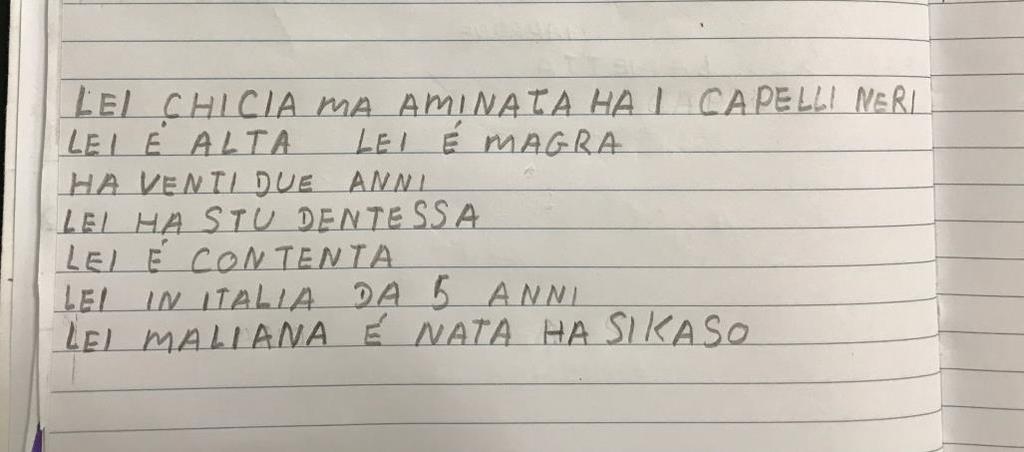 LEI CHICIA MA AMINATA HA I CAPELLI NERI
LEI É ALTA LEI É MAGRA
HA VENTI DUE ANNI
LEI HA STU DENTESSA
LEI É CONTENTA
LEI IN ITALIA DA 5 ANNI
LEI MALIANA É NATA HA SIKASO